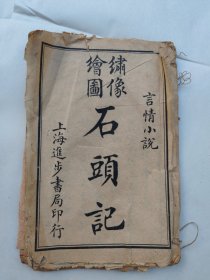 言情小說
繡像
繪圖
石頭記
上海進步書局印行